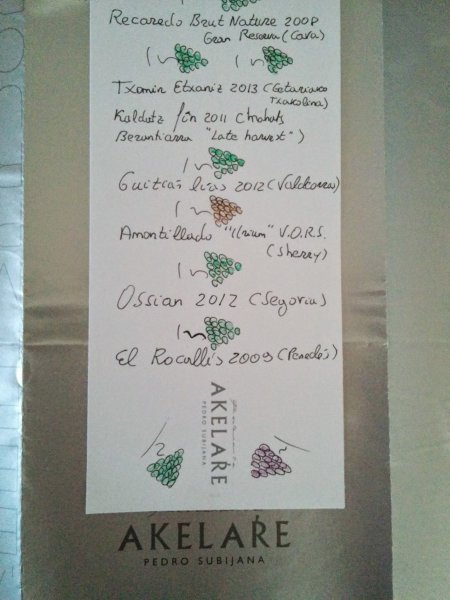 Recaredo Brut Nature 2008
Gran Reserva (Cava)
Txomin Etxaniz 2013 (Getariako
Txakolina)
Kaldutz fin 2011 (Mahats
Berantiarra "Late harvest")
Guitian lías 2012 (Valdeorras)
Amontillado V.O.R.S.
(Sherry)
Ossian 2012 (Segovia)
El Rocallís 2009 (Penedés)
AKELAŔE
PEDRO SUBIJANA
1/2
1/2
AKELAŔE
PEDRO SUBIJANA